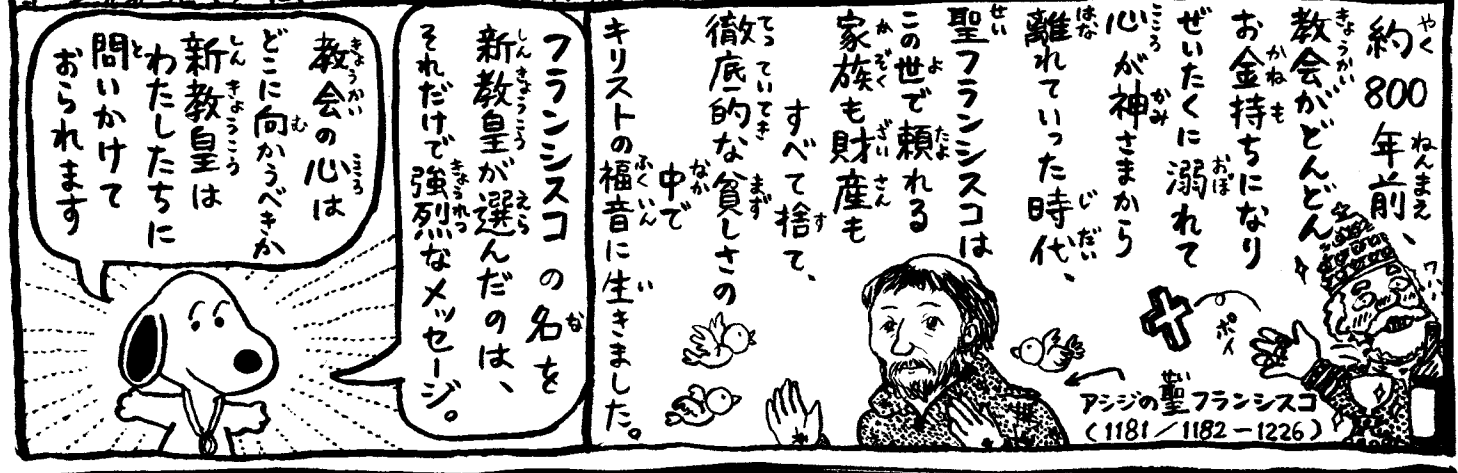 約800年前、
教会がどんどん
お金持ちになり
ぜいたくに溺れて
心が神さまから
離れていった時代、
聖フランシスコは
この世で頼れる
家族も財産も
すべて捨て、
徹底的な貧しさの
中で
キリストの福音に生きました。
ワハハ
ポイ
アシジの聖フランシスコ
(1181/1182-1226)
フランシスコの名を
新教皇が選んだのは、
それだけで強烈なメッセージ。
教会の心は
どこに向かうべきか
新教皇は
わたしたちに
問いかけて
おられます